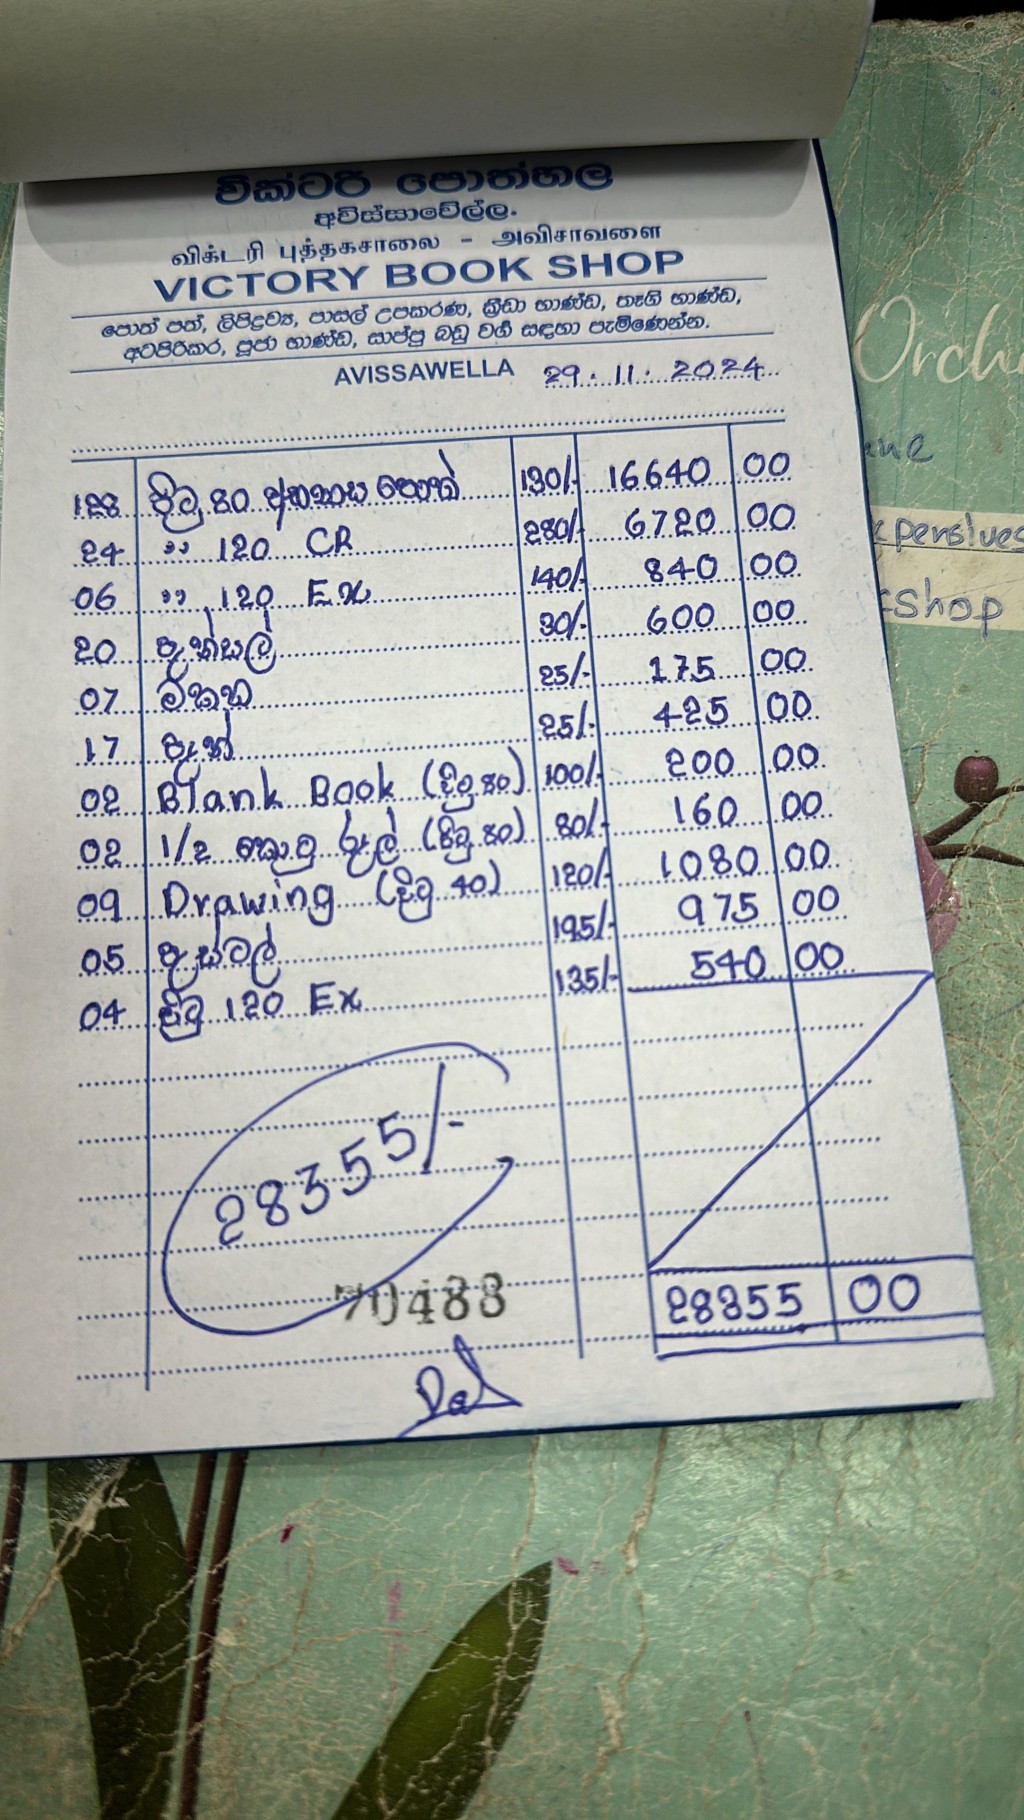 වික්ටරි පොත්හල
අවිස්සාවේල්ල.
விக்டரி புத்தகசாலை - அவிசாவளை
VICTORY BOOK SHOP
පොත් පත්, ලිපිද්‍රව්‍ය, පාසල් උපකරණ, ක්‍රීඩා භාණ්ඩ, තෑගි භාණ්ඩ,
අටපිරිකර, පූජා භාණ්ඩ, සාප්පු බඩු වර්ග සඳහා පැමිණෙන්න.
AVISSAWELLA 29.11.2024
128 පිටු 80 අභ්‍යාස පොත් 130/- 16640 00
24 " 120 CR 280/- 6720 00
06 " 120 Ex 140/- 840 00
20 පැන්සල් 30/- 600 00
07 මකන 25/- 175 00
17 පෑන් 25/- 425 00
02 Blank Book (පිටු 80) 100/- 200 00
02 1/2 කොටු රූල් (පිටු 80) 80/- 160 00
09 Drawing (පිටු 40) 120/- 1080 00
05 පැස්ටල් 195/- 975 00
04 පිටු 120 Ex 135/- 540 00
28355/-
70488
28355 00
Orch
kshop